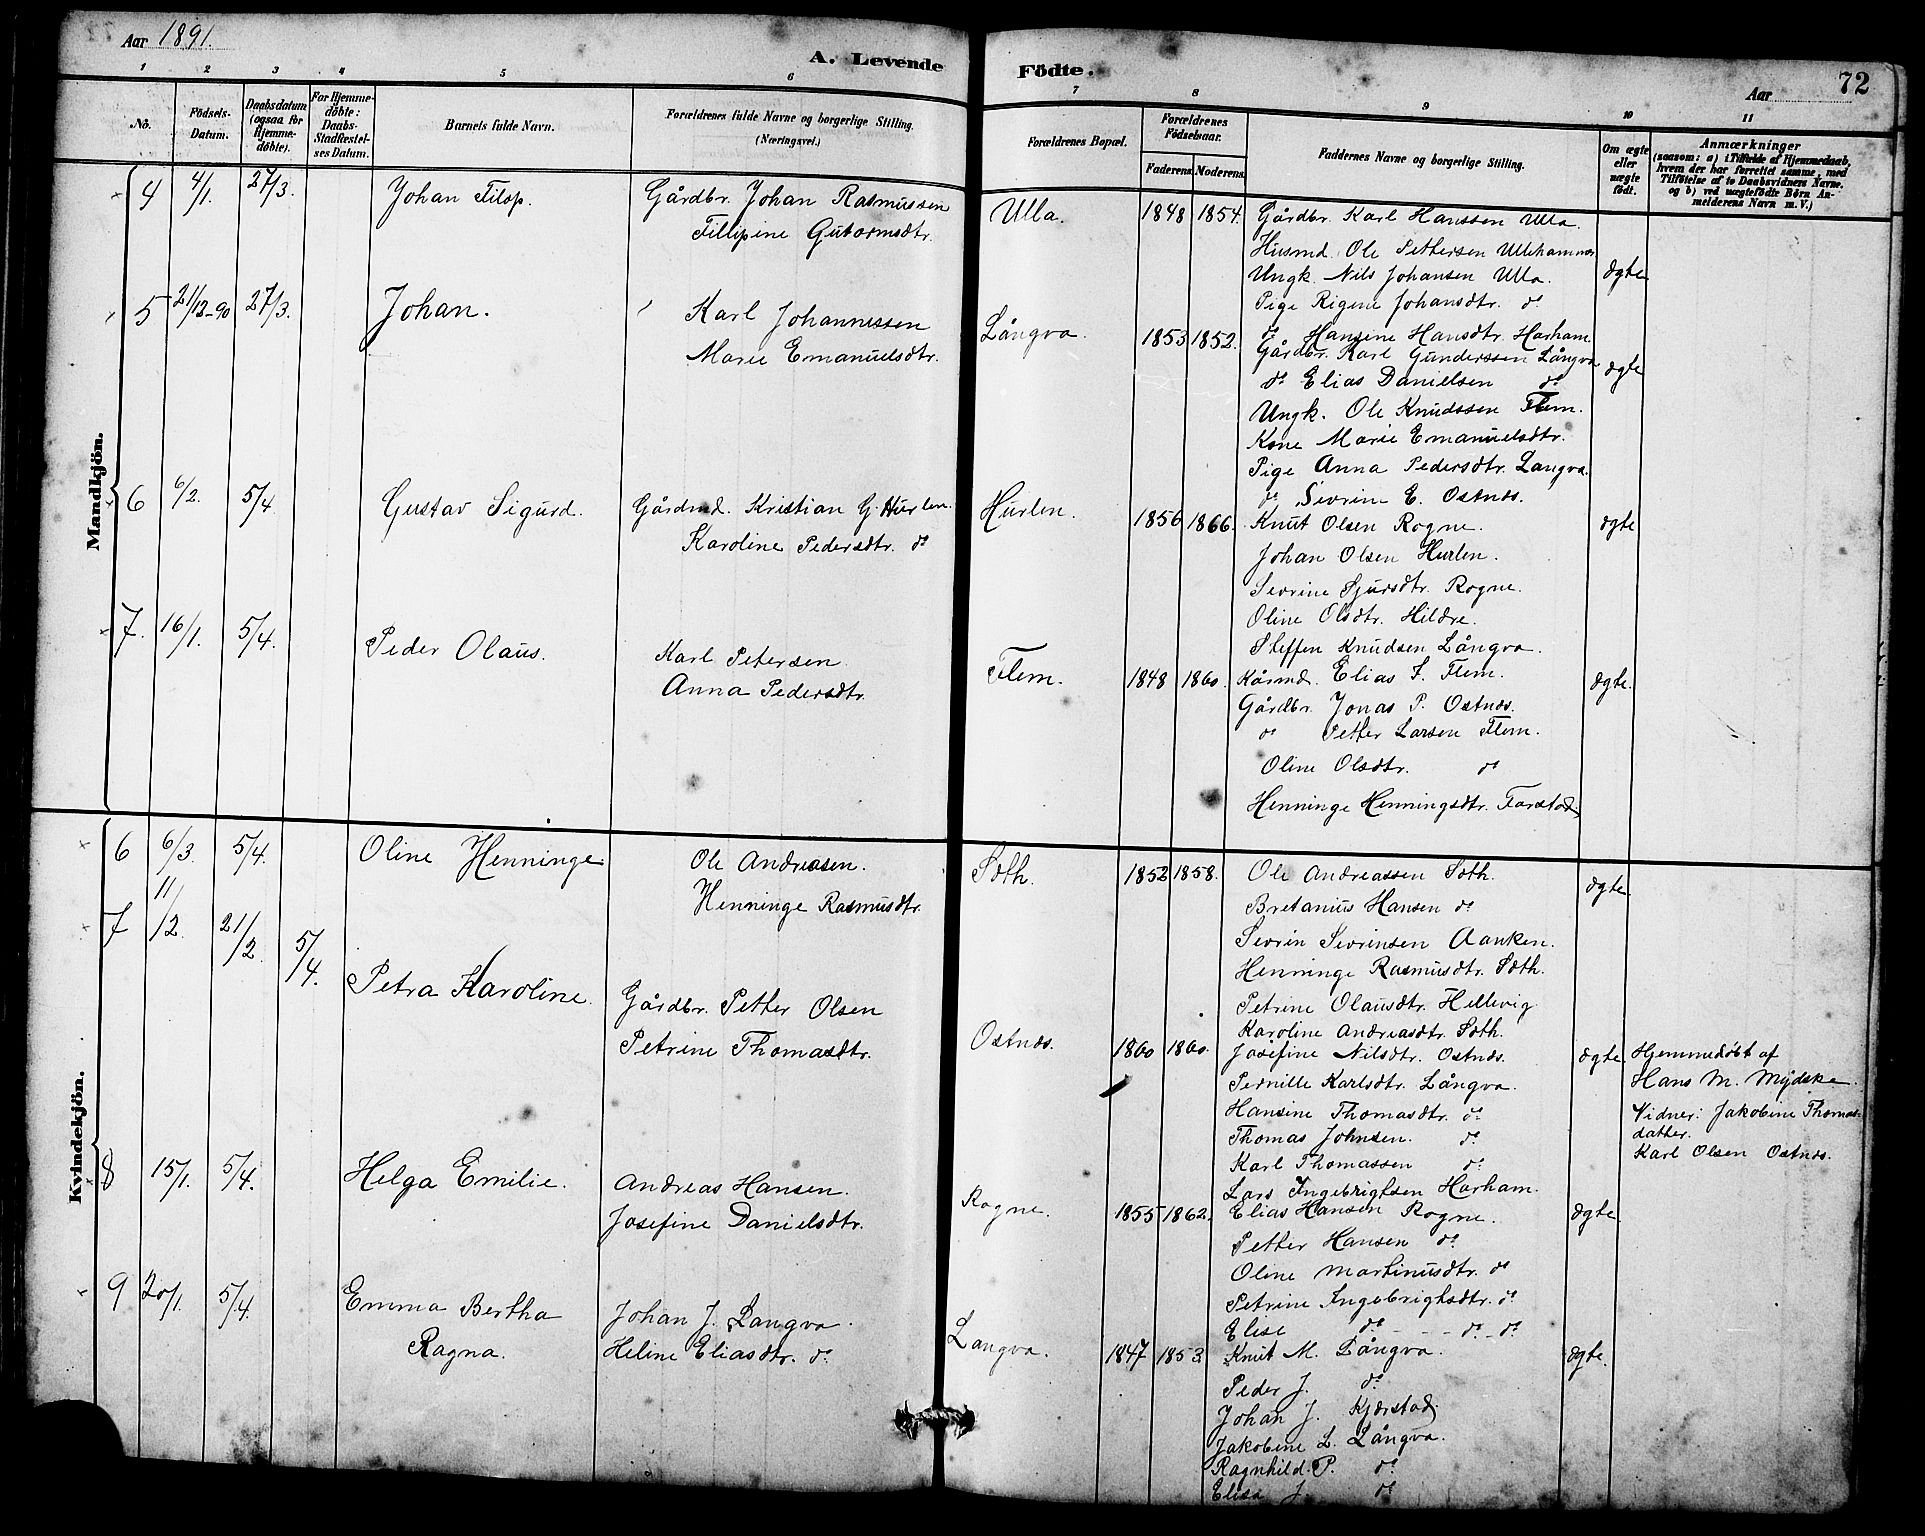 Aar 1891.
A. Levende Födte.
Aar
72
1 2 3 4 5 6 7 8 9 10 11
No.
Födsels-Datum.
Daabsdatum (ogsaa for Hjemme-döbte).
For Hjemme-döbte: Daabs-Stadfæstel-ses Datum.
Barnets fulde Navn.
Forældrenes fulde Navne og borgerlige Stilling. (Næringsvei.)
Forældrenes Bopæl.
Forældrenes Födselsaar.
Faderens. Moderens.
Faddernes Navne og borgerlige Stilling.
Om ægte eller uægte födt.
Anmærkninger
(saasom: a) i Tilfælde af Hjemmedaab, hvem der har forrettet samme, med Tilföielse af to Daabsvidners Navne, og b) ved uægtefödte Börn An-melderens Navn m. V.)
Mandkjön.
4 4/1. 27/3. Johan Filip. Gårdbr. Johan Rasmussen Ulla. 1848 1854. Gårdbr. Karl Hanssen Ulla.
Fillipine Gutormsdtr. Husmd. Ole Pettersen Ullahammer
Ungk. Nils Johansen Ulla. ægte
Pige Rigene Johansdtr. do
do Hansine Hansdtr. Harham.
5 21/12-90 27/3. Johan. Karl Johannessen Långva. 1853 1852. Gårdbr. Karl Gunderssen Långva ægte
Marie Emanuelsdtr. do Elias Danielsen do
Ungk. Ole Knudssen Flem.
Kone Marie Emanuelsdtr.
Pige Anna Pedersdtr. Langva.
do Sevrine E. Ostnæs.
6 6/2. 5/4. Gustav Sigurd. Gårdmd. Kristian G. Hurlen. Hurlen. 1856 1866. Knut Olsen Rogne. ægte
Karoline Pedersdtr. do Johan Olsen Hurlen.
Sevrine Sjursdtr. Rogne.
Oline Olsdtr. Hildre.
Steffen Knudsen Långva.
7. 16/1. 5/4. Peder Olaus. Karl Petersen. Flem. 1848 1860. Kårmd. Elias F. Flem. ægte.
Anna Pedersdtr. Gårdbr. Jonas P. Ostnæs.
do Petter Larsen Flem.
Oline Olsdtr. do
Henninge Henningsdtr. Farstad.
Kvindekjön.
6 6/3. 5/4. Oline Henninge Ole Andreasen. Sæth. 1852 1858. Ole Andreassen Sæth. ægte.
Henninge Rasmusdtr. Bretanius Hansen do
Sevrin Sevrinsen Aanken.
Henninge Rasmusdtr. Sæth.
Petrine Olausdtr. Hellevig
Karoline Andreasdtr. Sæth.
7 11/2. 21/2. 5/4. Petra Karoline. Gårdbr. Petter Olsen Ostnæs. 1860 1860. Josefine Nilsdtr. Ostnæs. ægte. Hjemmedøbt af
Petrine Thomasdtr. Pernille Karlsdtr. Långva. Hans M. Mÿdske.
Hansine Thomasdtr. do Vidner: Jakobine Thomas-
Thomas Johnsen. do datter.
Karl Thomassen do Karl Olsen Ostnæs.
Lars Ingebrigtsen Harham.
8 15/1. 5/4. Helga Emilie. Andreas Hansen. Rogne. 1855 1862. Elias Hansen Rogne. ægte.
Josefine Danielsdtr. Petter Hansen do
Oline Martinusdtr. do
Petrine Ingebrigtsdtr. do
Elise do - - - do - do
9 20/1. 5/4. Emma Bertha Johan J. Langva. Langva. 1847 1853. Knut M. Långva. ægte.
Ragna. Heline Eliasdtr. do Peder J. do
Johan J. Kjærstad.
Jakobine L. Långva.
Ragnhild. P. do
Elisa J. do